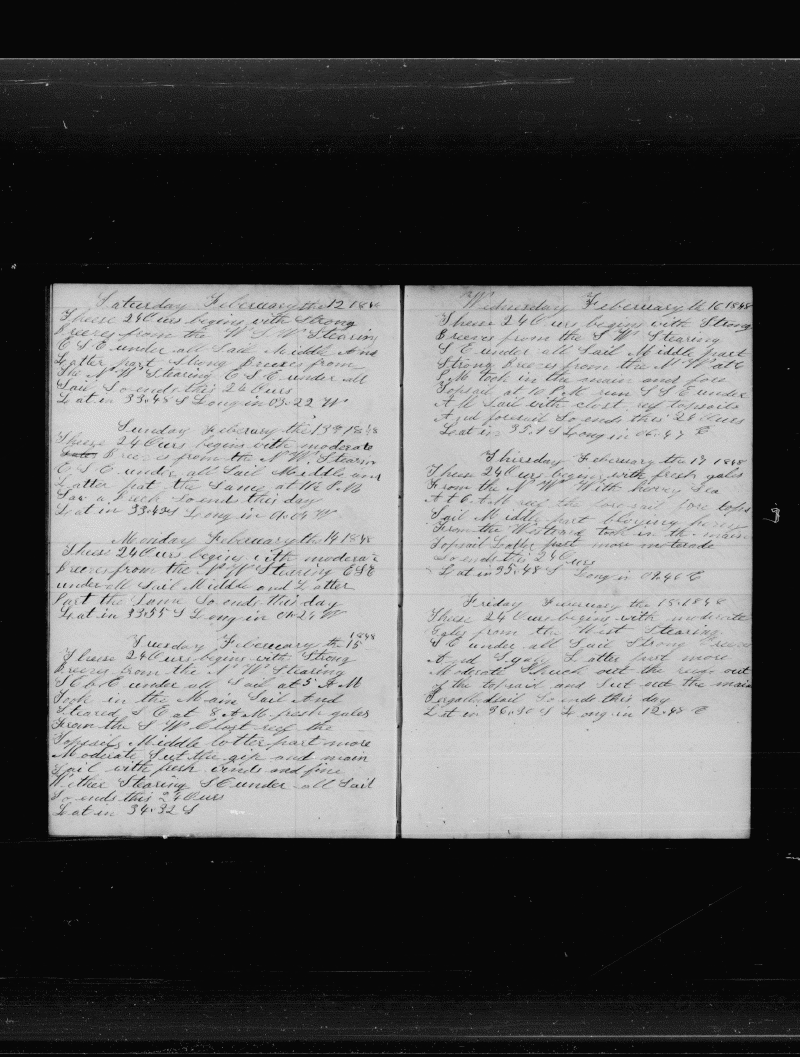 Saturday Feberuary the 12 1848
These 24 Ours begins with Strong
Breezes from the W S W Stearing
E S E under all Sail Middle And
Latter part Strong Breezes from
The N W Stearing E S E under all
Sail So ends this 24 Ours
Lat in 33.48 S Long in 03.22 W
Sunday Feberary the 13 1848
These 24 Ours begins with moderate
Breezes from the N W Stearin
E S E under all Sail Middle and
Latter pat the Same at the P M
Sav a So end this day
Lat in 33.42 S Long in 01.04 W
Monday February the 14 1848
These 24 Ours begins with moderate
Breezes from the N W Stearing E S E
under all Sail Middle and Latter
Part the Same So ends this day
Lat in 33.35 S Long in 01.24 W
Tuesday Feberuary the 15 1848
These 24 Ours begins with Strong
Breezes from the N W Stearing
S E b E under all Sail at 5 A M
Took in the Main Sail And
Steared S E at 8 A M fresh gales
From the S W Close reef the
Topsails Middle lotter part more
Moderate Sut the gip and main
Sail with fresh winds and fine
Wether Stearing S E under all Sail
So ends this 24 Ours
Lat in 34.32 S
Wednesday Feberuary th 16 1848
These 24 Ours begins with Strong
Breezes from the S W Stearing
S E under all Sail Middle part
Strong Breezes from the N W at 6
P M took in the main and fore
Topsail at 10 P M run S S E under
A M Sail with close reef topsails
And foresail So ends this 24 Ours
Lat in 35.1 S Long in 06.47 E
Thirsday Feberuary the 17 1848
These 24 Ours begins with fresh gales
From the N W With hevey Sea
At 6 A M the foresail fore tops
Sail Middle part blowing
From the Westward took in the main
Topsail Latter part more moterade
So ends this 24 Ours
Lat in 35.48 S Long in 09.46 E
Friday Feberuary the 18 1848
These 24 Ours begins with moderate
Gales from the West Stearing
S E under all Sail Strong Breezes
And Latter part more
Moderate Shuck out the reefs out
of the topsail and Sut out the main
So ends this day
Lat in 36.30 S Long in 12.48 E